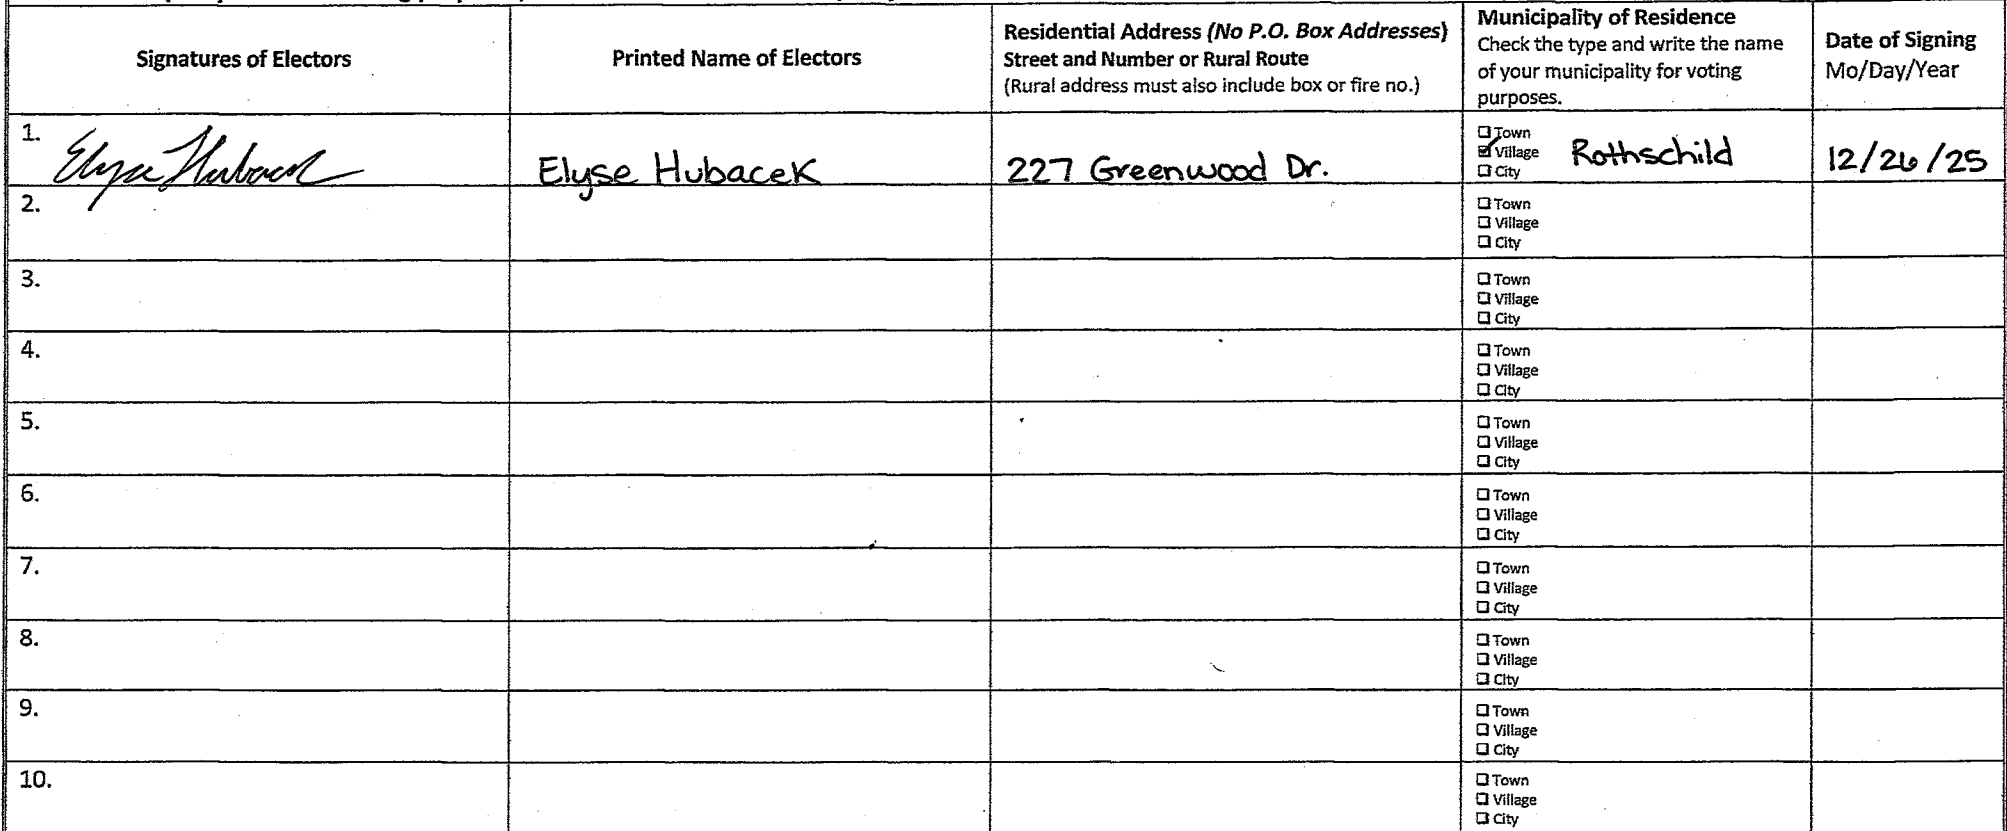 Signatures of Electors
Printed Name of Electors
Residential Address (No P.O. Box Addresses)
Street and Number or Rural Route
(Rural address must also include box or fire no.)
Municipality of Residence
Check the type and write the name
of your municipality for voting
purposes.
Date of Signing
Mo/Day/Year
1.
Elyse Hubacek
Elyse Hubacek
227 Greenwood Dr.
☐ Town
☑ Village
☐ City
Rothschild
12/26/25
2.
☐ Town
☐ Village
☐ City
3.
☐ Town
☐ Village
☐ City
4.
☐ Town
☐ Village
☐ City
5.
☐ Town
☐ Village
☐ City
6.
☐ Town
☐ Village
☐ City
7.
☐ Town
☐ Village
☐ City
8.
☐ Town
☐ Village
☐ City
9.
☐ Town
☐ Village
☐ City
10.
☐ Town
☐ Village
☐ City